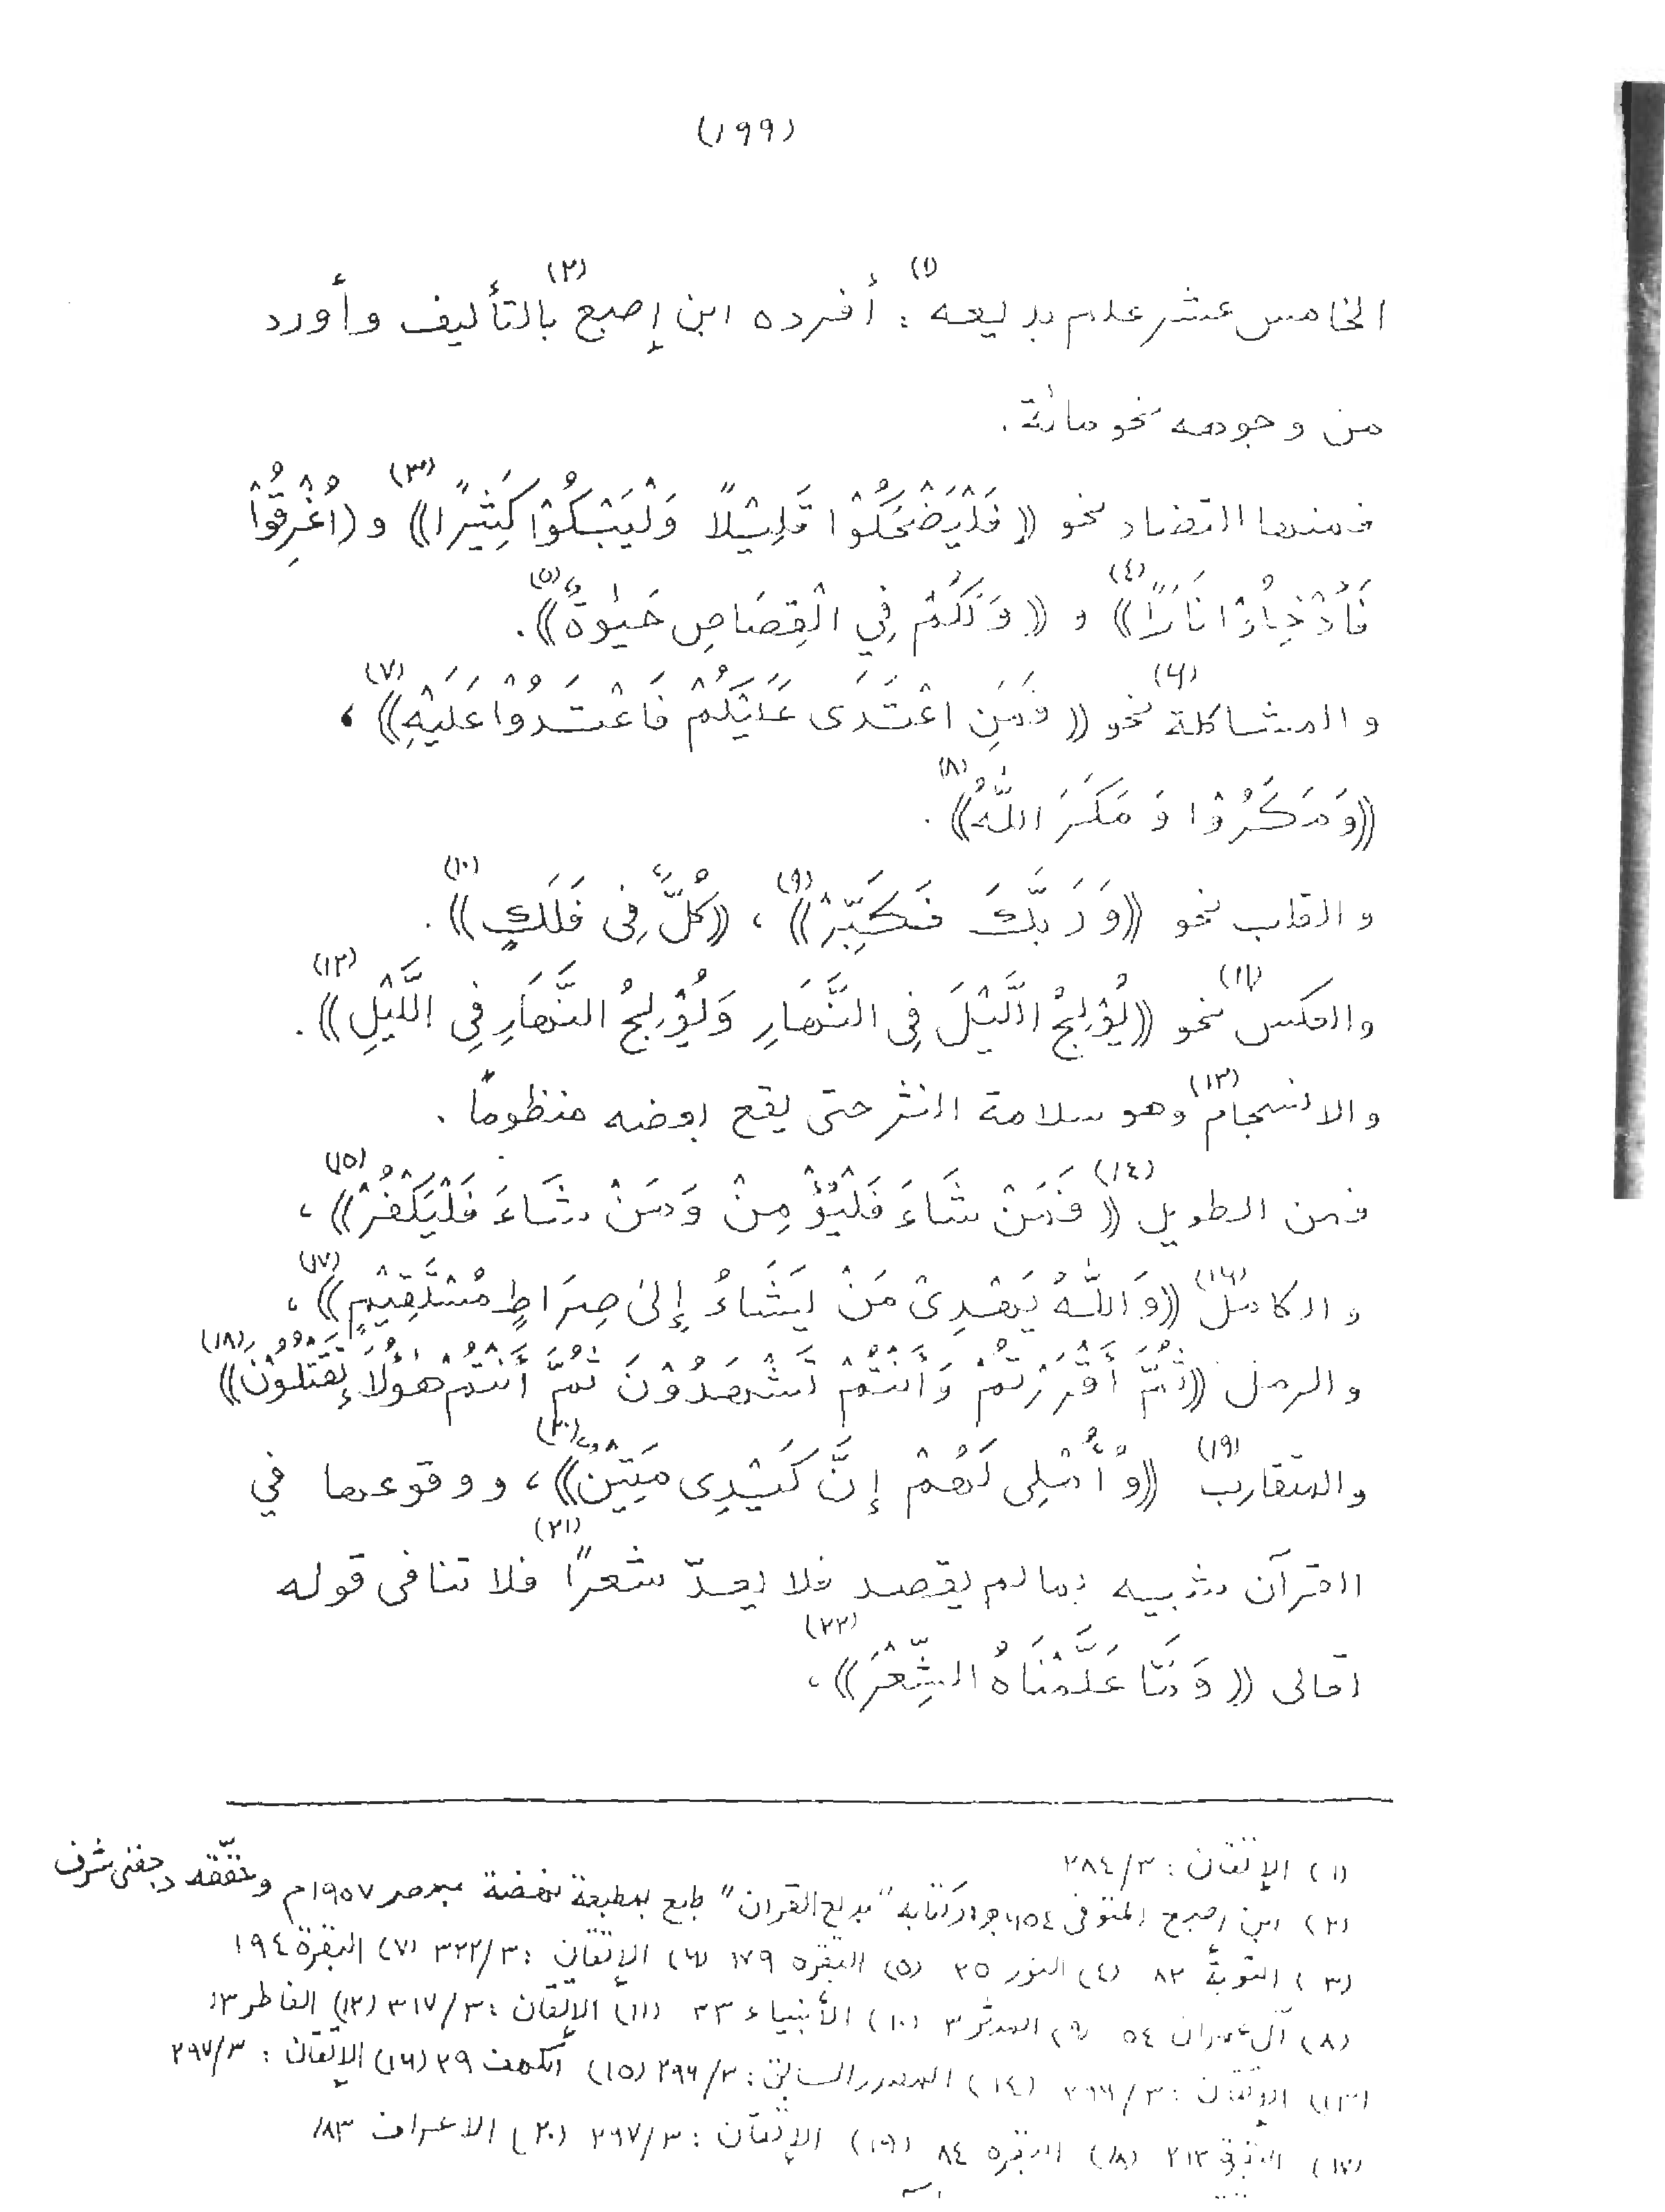 (١٩٩)
الخامس عشر علم بديعه (١) : أفرده ابن إصبع (٢) بالتأليف وأورد
من وجوهه نحو مائة .
فمنها التضاد نحو ((فَلْيَضْحَكُوْا قَلِيْلًا وَلْيَبْكُوْا كَثِيْرًا)) (٣) و (اُغْرِقُوْا
فَأُدْخِلُوْا نَارًا)) (٤) و ((وَلَكُمْ فِي الْقِصَاصِ حَيٰوةٌ)) (٥) .
والمشاكلة (٦) نحو ((فَمَنِ اعْتَدَى عَلَيْكُمْ فَاعْتَدُوْا عَلَيْهِ)) (٧) ،
((وَمَكَرُوْا وَمَكَرَ اللّٰهُ)) (٨) .
والقلب نحو ((وَرَبَّكَ فَكَبِّرْ)) (٩) ، ((كُلٌّ فِى فَلَكٍ)) (١٠) .
والعكس (١١) نحو ((يُوْلِجُ الَّيْلَ فِى النَّهَارِ وَيُوْلِجُ النَّهَارَ فِي اللَّيْلِ)) (١٢) .
والانسجام (١٣) وهو سلامة النثر حتى يقع بعضه منظوماً .
فمن الطويل (١٤) ((فَمَنْ شَاءَ فَلْيُؤْمِنْ وَمَنْ شَاءَ فَلْيَكْفُرْ)) (١٥) ،
والكامل (١٦) ((وَاللّٰهُ يَهْدِىْ مَنْ يَشَاءُ إِلىٰ صِرَاطٍ مُسْتَقِيْمٍ)) (١٧) ،
والرمل ((ثُمَّ أَقْرَرْتُمْ وَأَنْتُمْ تَشْهَدُوْنَ ثُمَّ أَنْتُمْ هٰؤُلَاءِ تَقْتُلُوْنَ)) (١٨)
والمتقارب (١٩) ((وَأُمْلِى لَهُمْ إِنَّ كَيْدِى مَتِيْنٌ)) (٢٠) ، ووقوعها في
القرآن شبيه بما لم يقصد فلا يعدّ شعرًا (٢١) فلا تنافى قوله
تعالى ((وَمَا عَلَّمْنَاهُ الشِّعْرَ)) (٢٢) ،
(١) الإتقان : ٢٨٤/٣
(٢) ابن إصبع المتوفى ٦٥٤ كتابه "بديع القرآن" طبع بمطبعة نهضة بمصر ١٩٥٧م وحققه د حفنى شرف
(٣) التوبة ٨٢ (٤) النور ٢٥ (٥) البقره ١٧٩ (٦) الإتقان : ٣٢٢/٣ (٧) البقرة ١٩٤
(٨) آل عمران ٥٤ (٩) المدثر ٣ (١٠) الأنبياء ٣٣ (١١) الإتقان : ٣١٧/٣ (١٢) الفاطر ١٣
(١٣) الإتقان : ٢٩٦/٣ (١٤) المصدر السابق : ٢٩٦/٣ (١٥) الكهف ٢٩ (١٦) الإتقان : ٢٩٧/٣
(١٧) البقرة ٢١٣ (١٨) البقره ٨٤ (١٩) الإتقان : ٢٩٧/٣ (٢٠) الاعراف ١٨٣